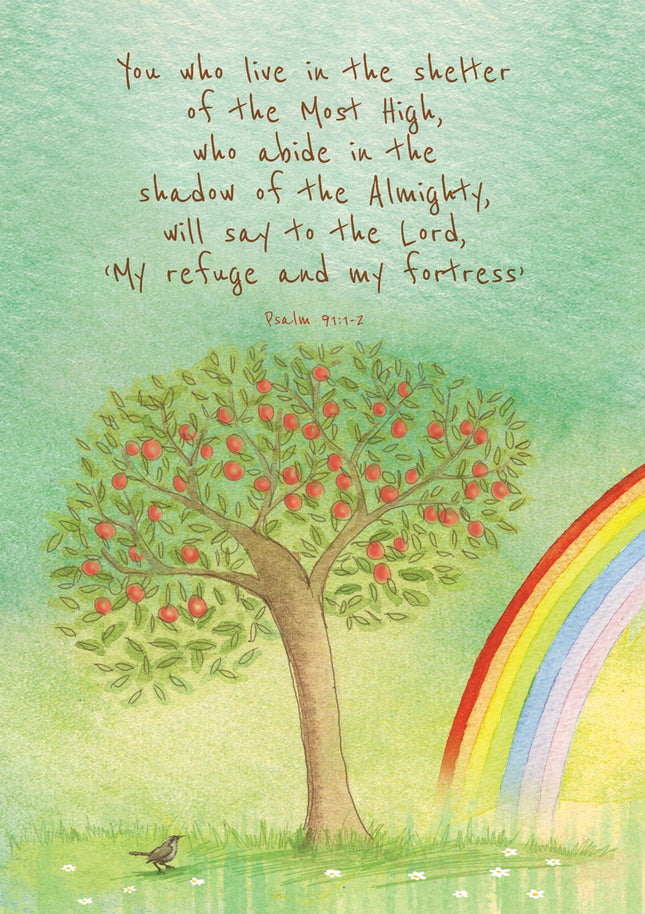 You who live in the shelter
of the Most High,
who abide in the
shadow of the Almighty,
will say to the Lord,
‘My refuge and my fortress’
Psalm 91:1-2